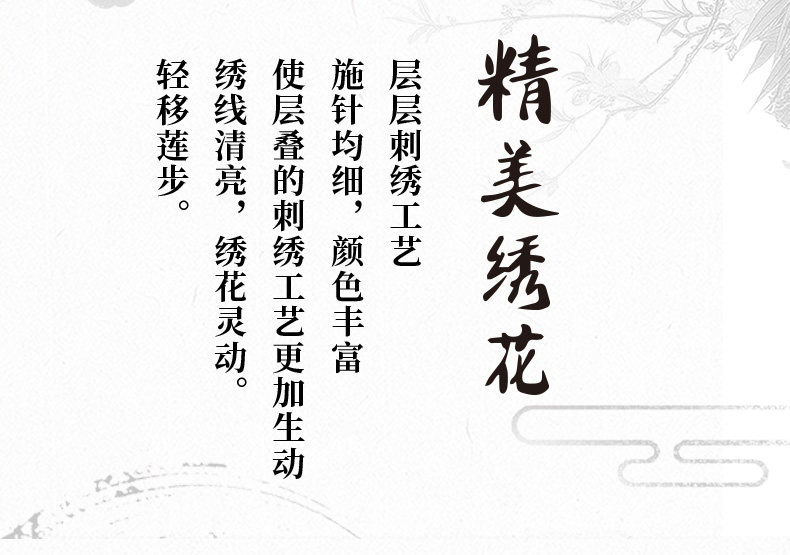 精美绣花
层层刺绣工艺
施针均细，颜色丰富
使层叠的刺绣工艺更加生动
绣线清亮，绣花灵动。
轻移莲步。